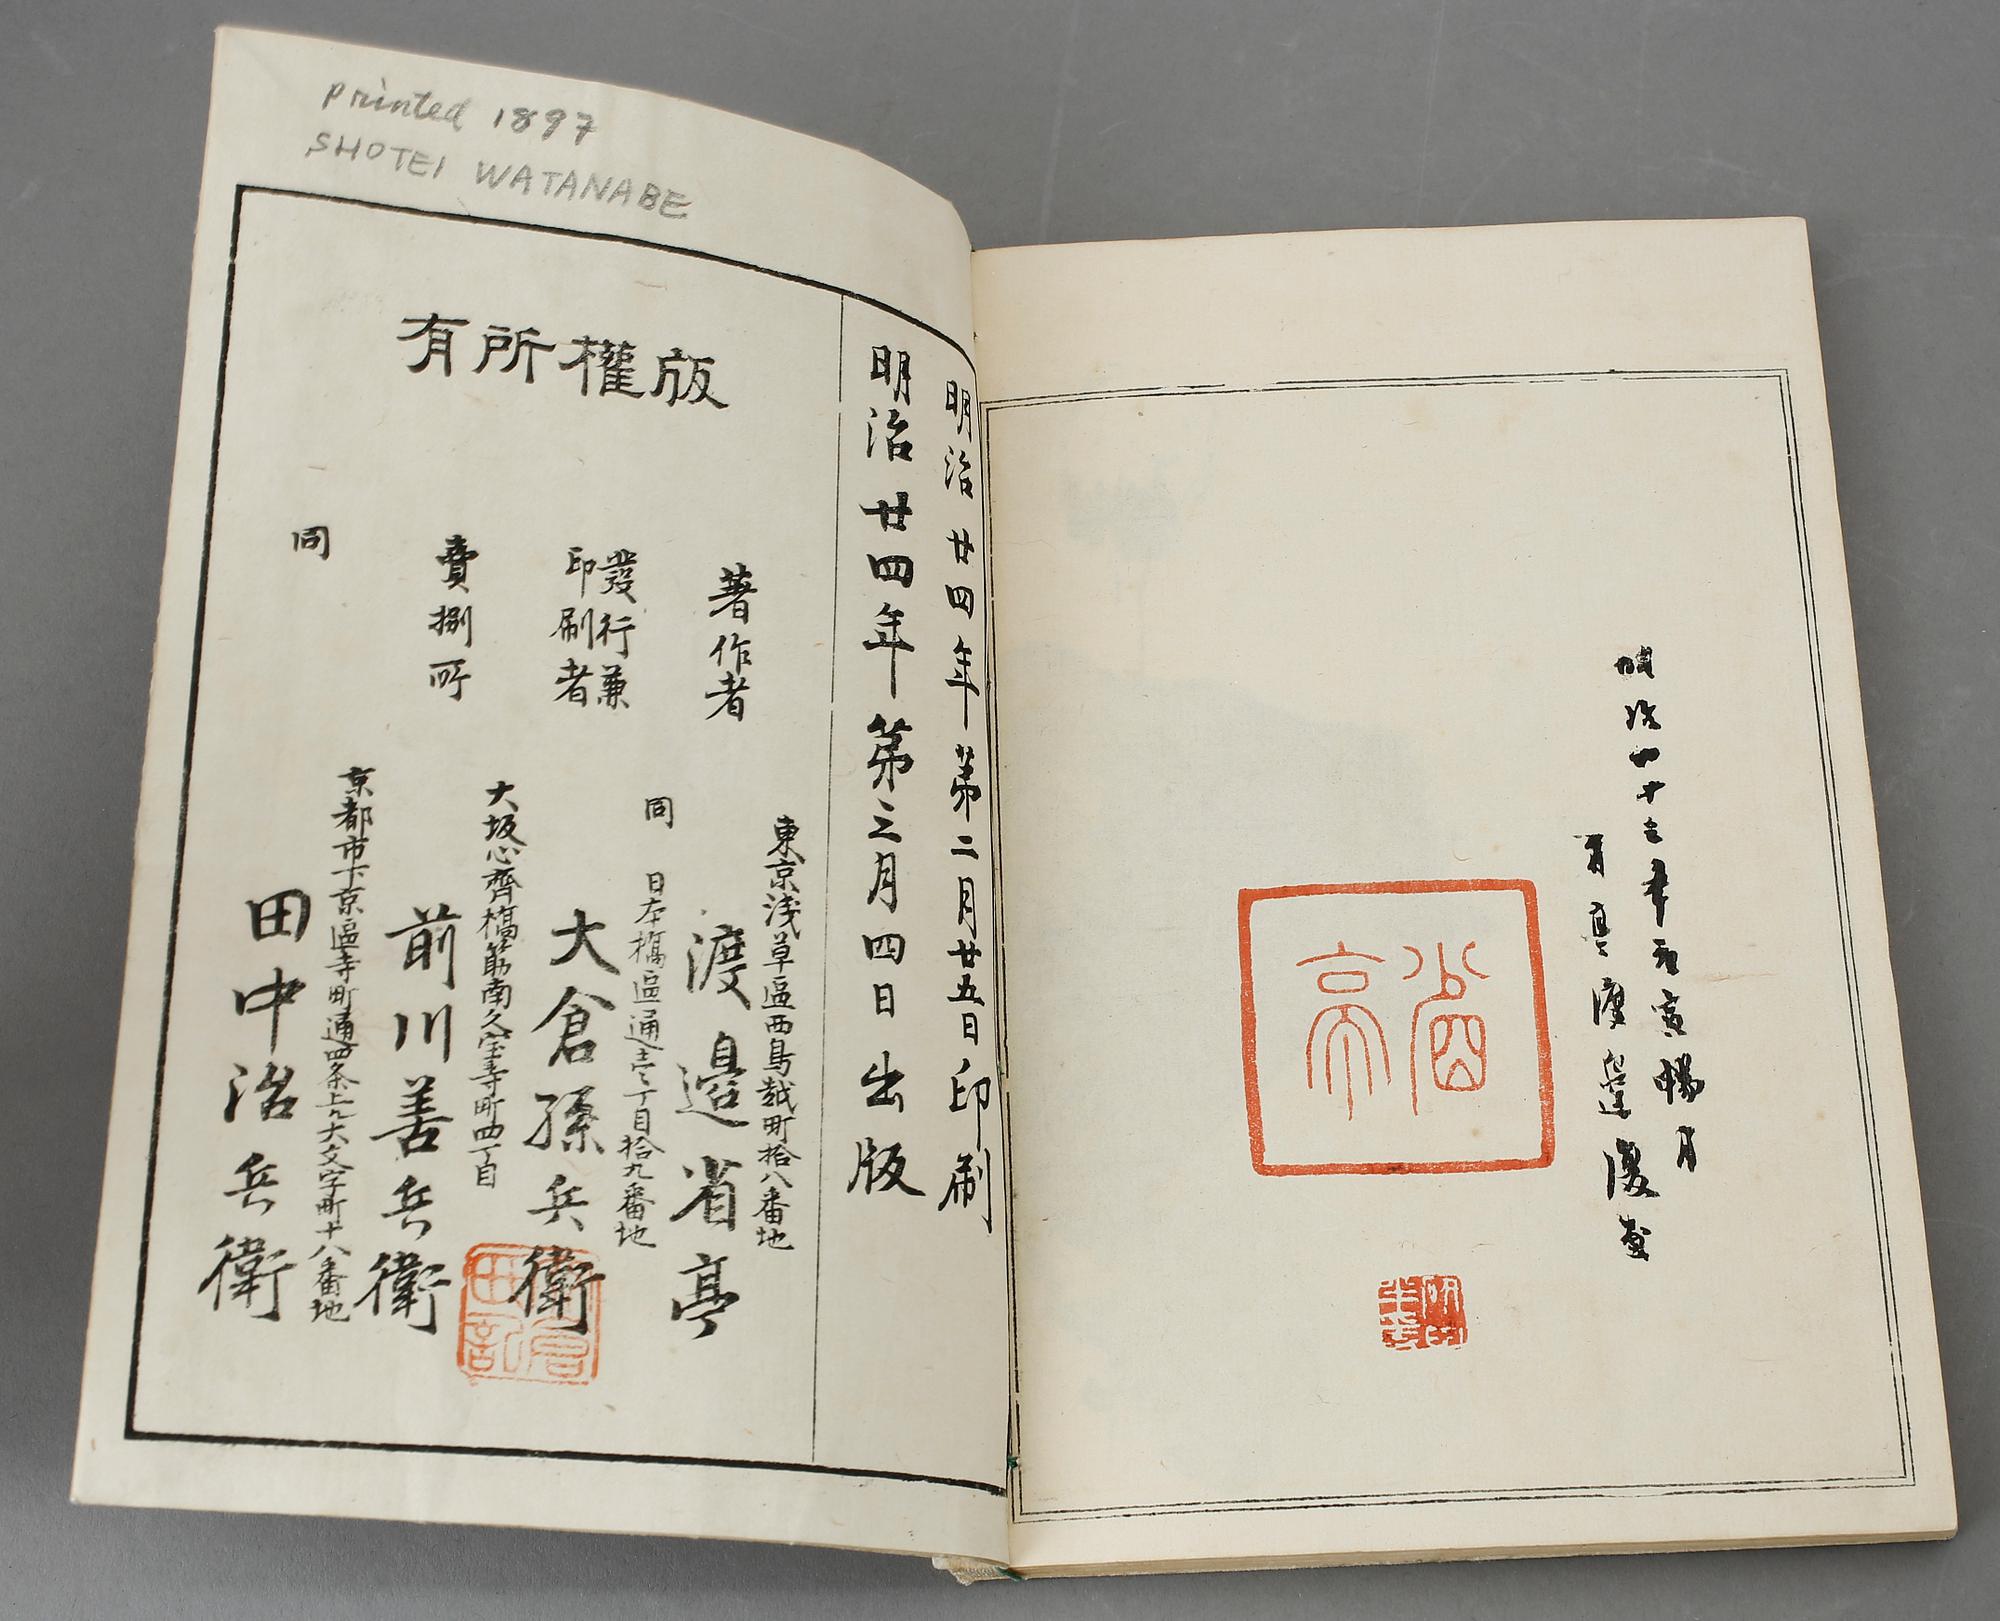 printed 1897
SHOTEI WATANABE
明治廿四年第二月廿五日印刷
明治廿四年第三月四日出版
版權所有
著作者
東京浅草區西鳥越町拾八番地
渡邉省亭
發行兼
印刷者
同 日本橋區通壱丁目拾九番地
大倉孫兵衛
賣捌所
大坂心齊橋筋南久宝寺町四丁目
前川善兵衛
同
京都市下京區寺町通四条上ル大文字町十八番地
田中治兵衛
省亭